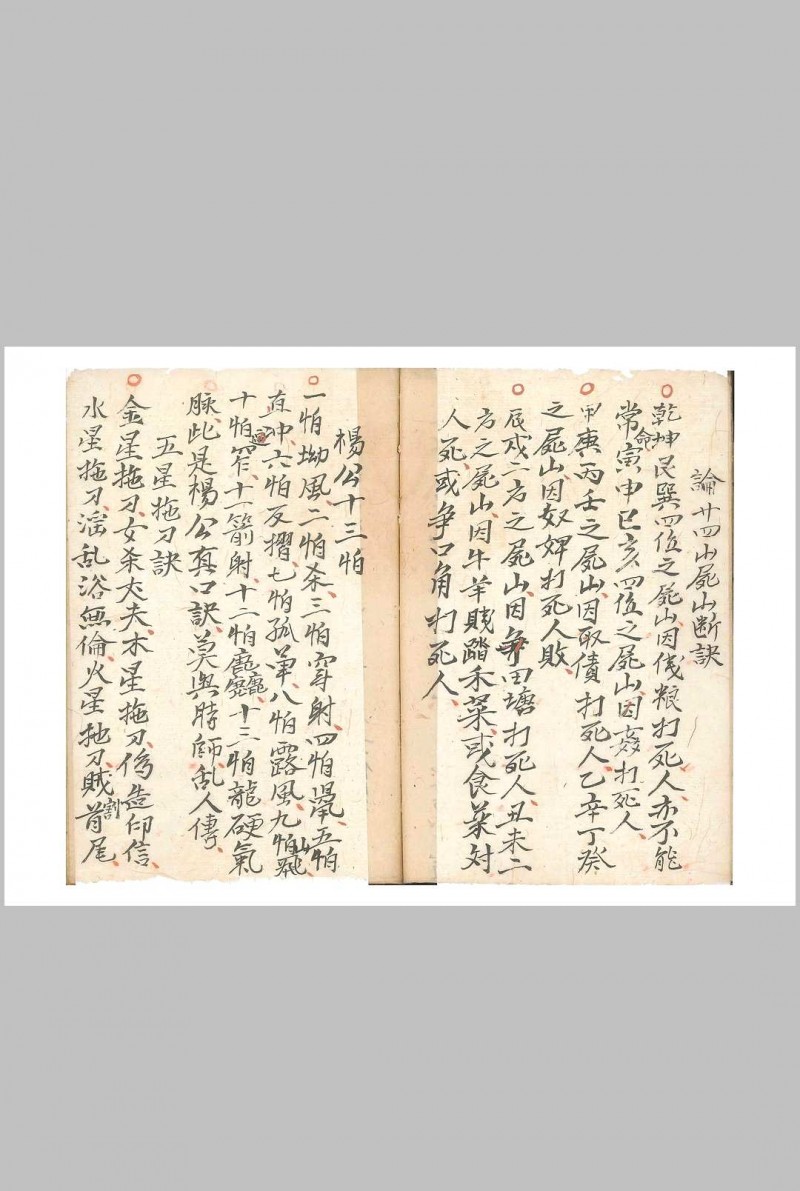 論廿四山屍山断訣
乾坤艮巽四位之屍山因伐粮打死人亦不能
常命寅申巳亥四位之屍山因姦打死人
甲庚丙壬之屍山因取債打死人乙辛丁癸
之屍山因奴婢打死人敗
辰戌二方之屍山因争田塘打死人丑未二
方之屍山因牛羊賤踏禾菜或食菜対
人死或争口角打死人
楊公十三怕
一怕坳風二怕杀三怕穿射四怕 五怕
直冲六怕反摺七怕孤单八怕露風九怕山飛
十怕窄十一箭射十二怕 十三怕龍硬氣
脉此是楊公真口訣莫與時師乱人傳
五星拖刀訣
金星拖刀女杀丈夫木星拖刀偽造印信
水星拖刀淫乱浴無倫火星拖刀賊割首尾